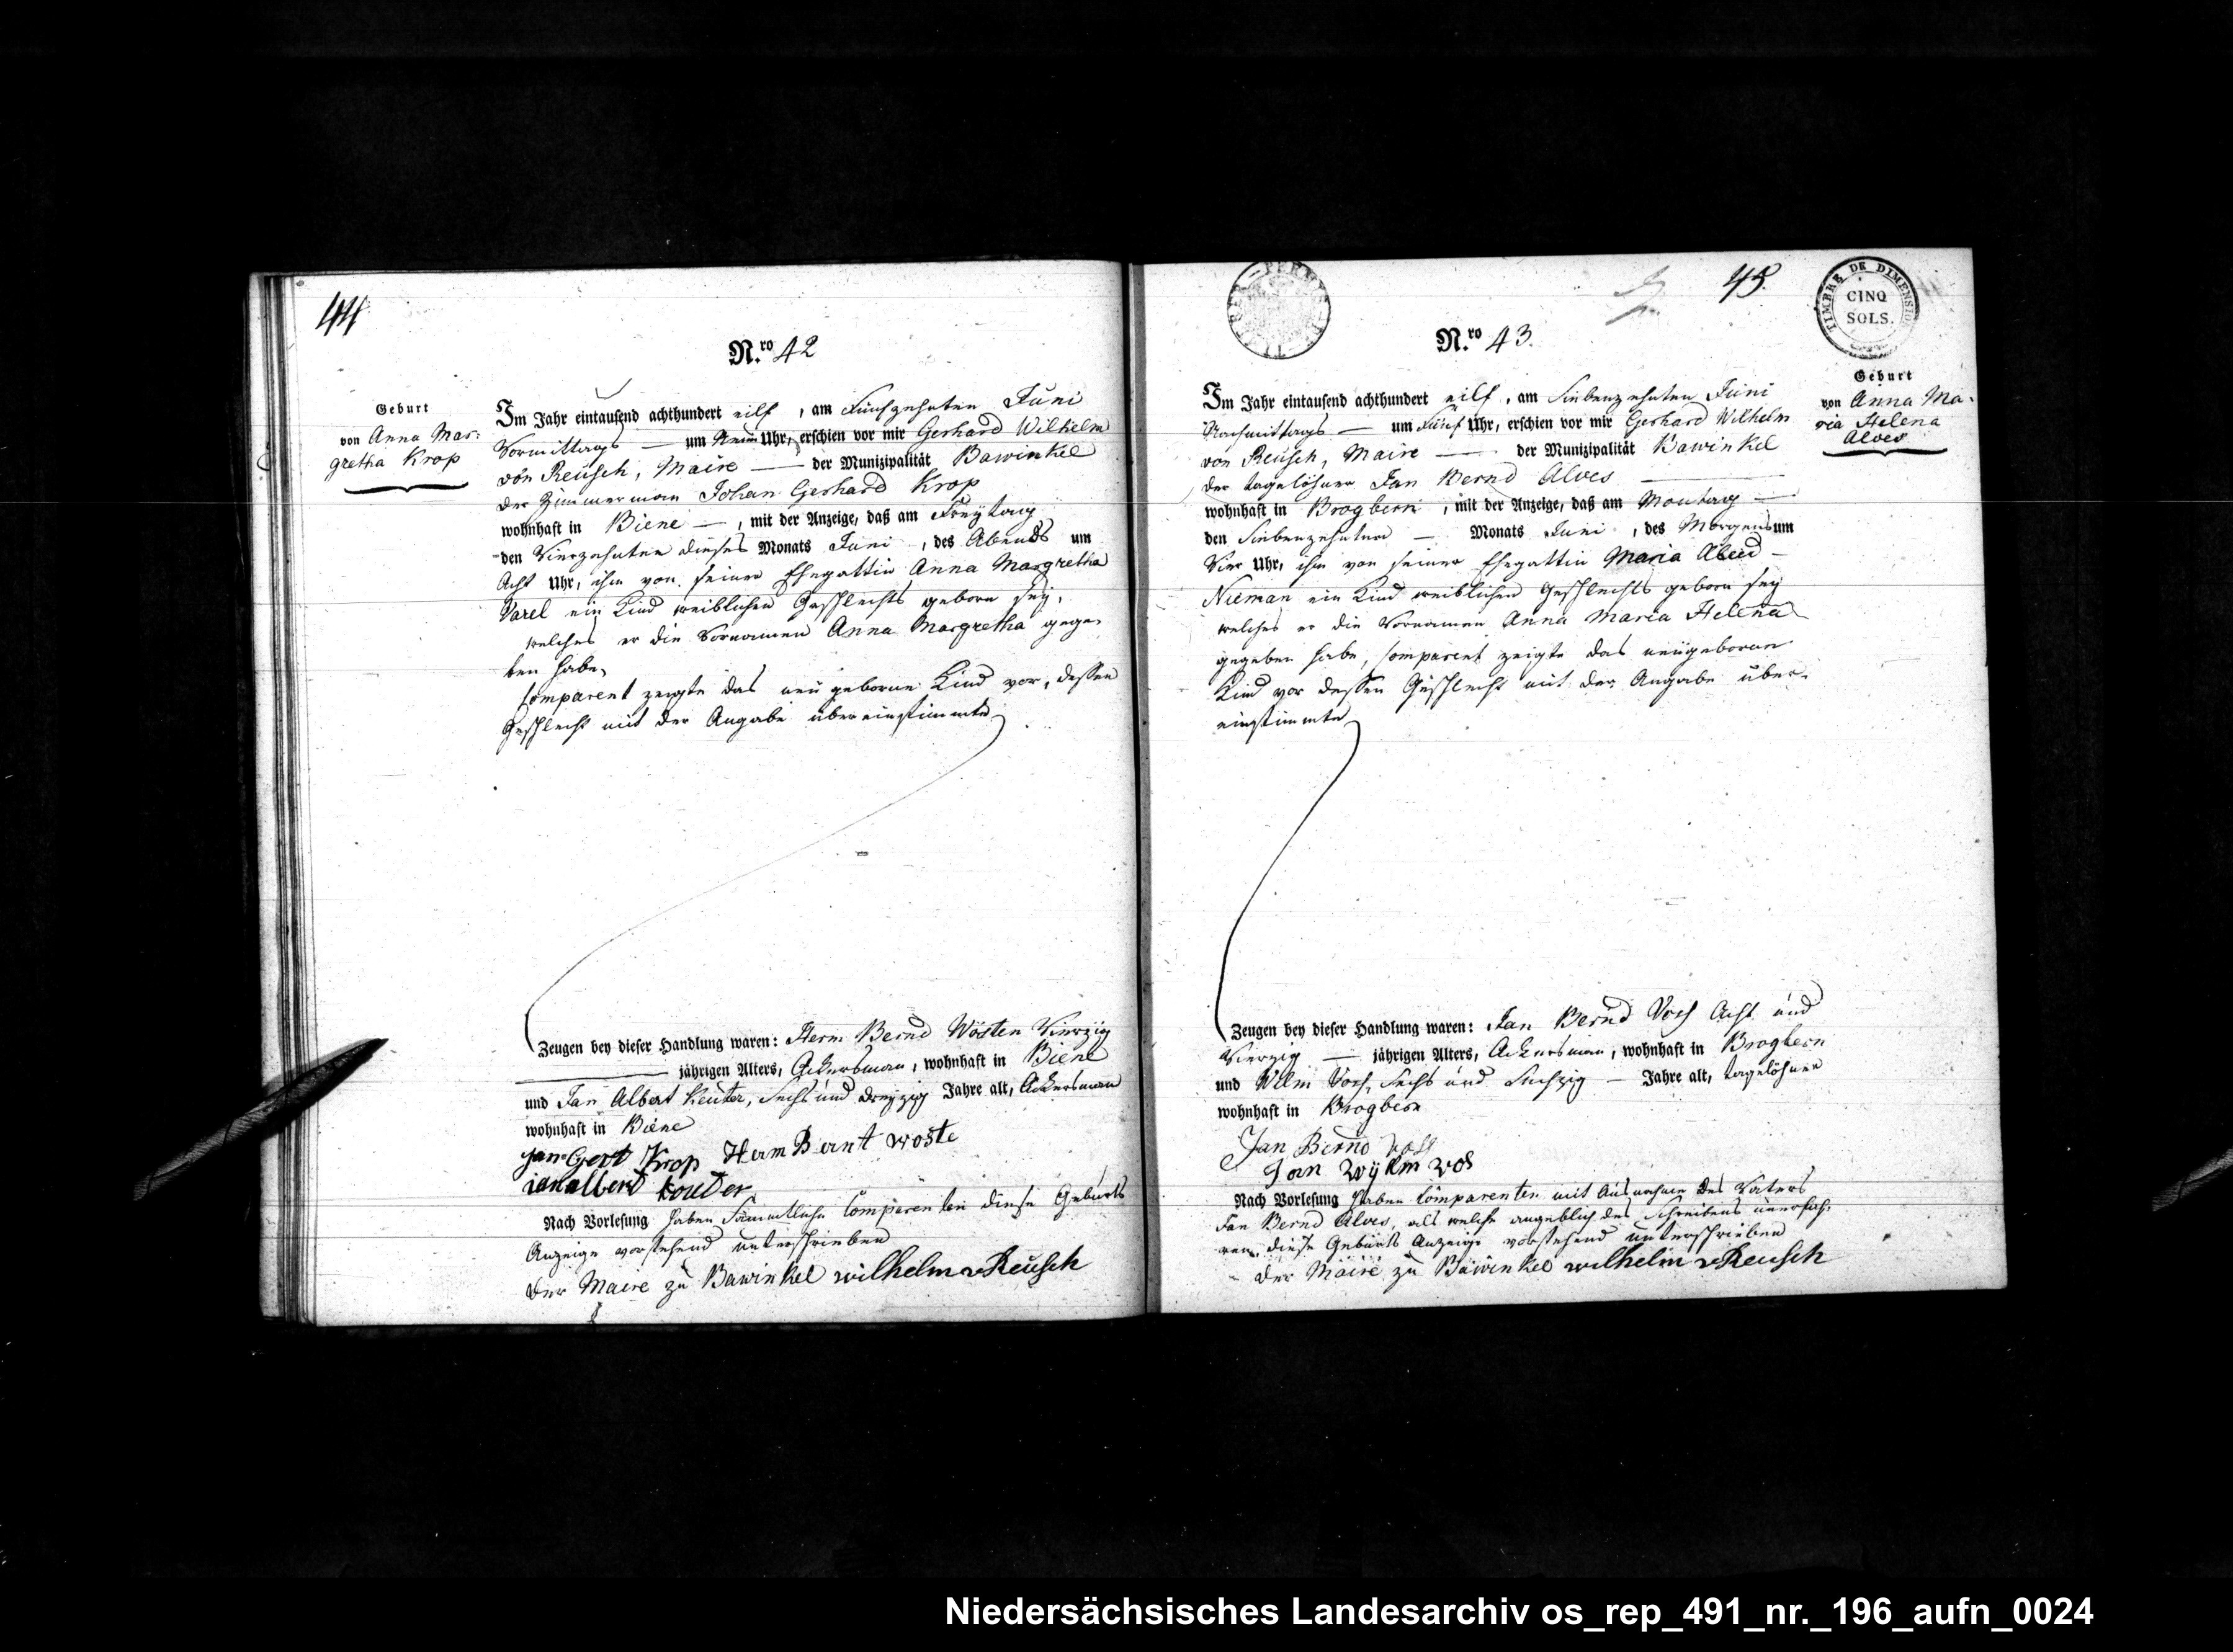 44
N.ro 42
Geburt
von Anna Mar=
gretha Krop
Im Jahr eintausend achthundert eilf, am Fünfzehnten Juni
Vormittags — um Neun Uhr, erschien vor mir Gerhard Wilhelm
von Reüsch, Maire — der Munizipalität Bawinkel
der Zimmerman Johan Gerhard Krop
wohnhaft in Biene —, mit der Anzeige, daß am Freytag
den Vierzehnten dieses Monats Juni, des Abends um
Acht Uhr, ihm von seiner Ehegattin Anna Margretha
Varel ein Kind weiblichen Geschlechts geborn sey,
welches er die Vornamen Anna Margretha gege-
ben habe,
Comparent zeigte das neü geborne Kind vor, dessen
Geschlecht mit der Angabe übereinstimmte
Zeugen bey dieser Handlung waren: Herm Bernd Wösten Vierzig
— jährigen Alters, Ackersman, wohnhaft in Biene
und Jan Albert Keuter, Sechs und dreyzig Jahre alt, Ackersman
wohnhaft in Biene
Jan Gert Krop Herm Bernt woste
ian albert kouter
Nach Vorlesung haben Sämmtliche Comparenten diese Geburts
Anzeige vorstehend unterschrieben
Der Maire zu Bawinkel wilhelm v Reusch
45.
TIMBRE DE DIMENSION
CINQ
SOLS.
N.ro 43.
Geburt
von Anna Ma-
ria Helena
Alves
Im Jahr eintausend achthundert eilf, am Siebenzehnten Juni
Nachmittags — um Fünf Uhr, erschien vor mir Gerhard Wilhelm
von Reüsch, Maire — der Munizipalität Bawinkel
der tagelöhner Jan Bernd Alves —
wohnhaft in Brogbern, mit der Anzeige, daß am Montag —
den Siebenzehnten — Monats Juni, des Morgens um
Vier Uhr, ihm von seiner Ehegattin Maria Aleid —
Nieman ein Kind weiblichen Geschlechts geborn sey
welches er die Vornamen Anna Maria Helena
gegeben habe, Comparent zeigte das neügeborne
Kind vor dessen Geschlecht mit der Angabe über-
einstimmte
Zeugen bey dieser Handlung waren: Jan Bernd Vosf Acht und
Vierzig — jährigen Alters, Ackersman, wohnhaft in Brogbern
und Wilm Vosf, Sechs und Sechzig — Jahre alt, tagelöhner
wohnhaft in Brogbern
Jan Bernd voss
Jan wijlm vos
Nach Vorlesung haben Comparenten mit Ausnahme des Vaters
Jan Bernd Alves, als welche angeblich des Schreibens unerfah-
ren, diese Geburts Anzeige vorstehend unterschrieben
Der Maire zu Bawinkel wilhelm v Reusch
Niedersächsisches Landesarchiv os_rep_491_nr._196_aufn_0024